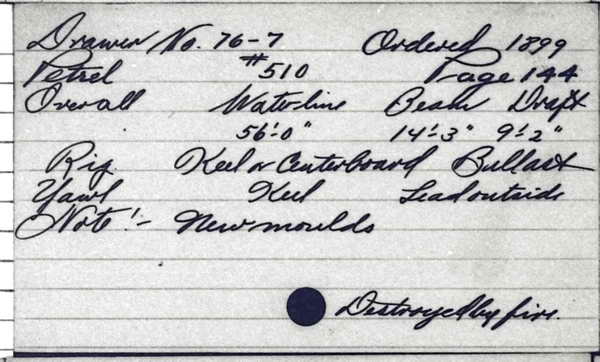 Drawer No. 76-7 Ordered 1899
Petrel #510 Page 144
Overall Waterline Beam Draft
56'-0" 14'-3" 9'-2"
Rig Keel or Centerboard Ballast
Yawl Keel Lead outside
Note!- New moulds
Destroyed by fire.